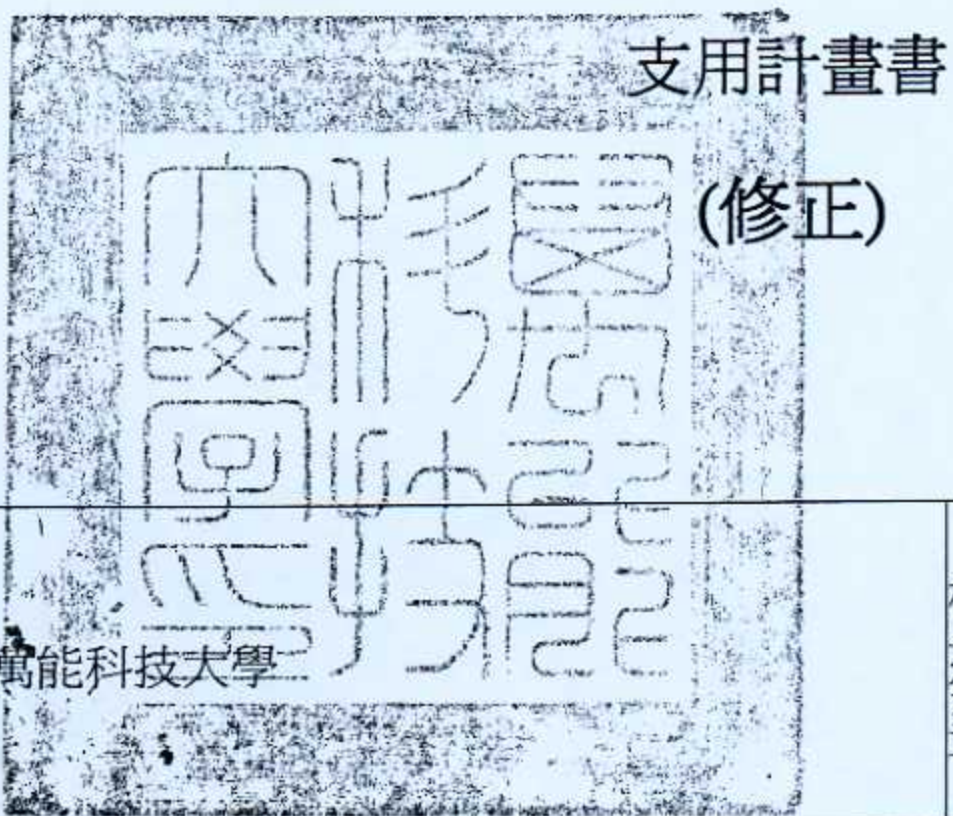 支用計畫書
(修正)
萬能科技大學
萬能
科技
大學印